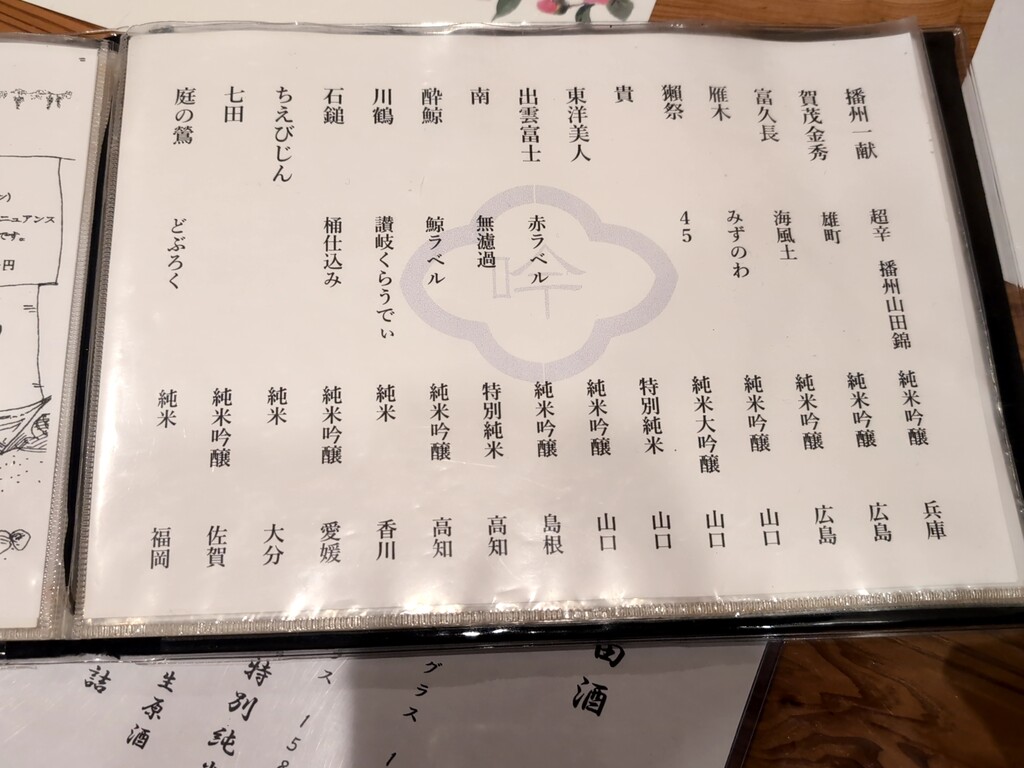 播州一献 超辛 播州山田錦 純米吟醸 兵庫
賀茂金秀 雄町 純米吟醸 広島
富久長 海風土 純米吟醸 広島
雁木 みずのわ 純米吟醸 山口
獺祭 45 純米大吟醸 山口
貴 特別純米 山口
東洋美人 純米吟醸 山口
出雲富士 赤ラベル 純米吟醸 島根
南 無濾過 特別純米 高知
酔鯨 鯨ラベル 純米吟醸 高知
川鶴 讃岐くらうでぃ 純米 香川
石鎚 桶仕込み 純米吟醸 愛媛
ちえびじん 純米 大分
七田 純米吟醸 佐賀
庭の鶯 どぶろく 純米 福岡
吟
ン)
ニュアンス
です。
円
酒
グラス 1
ス 15
特別純
生原酒
詰